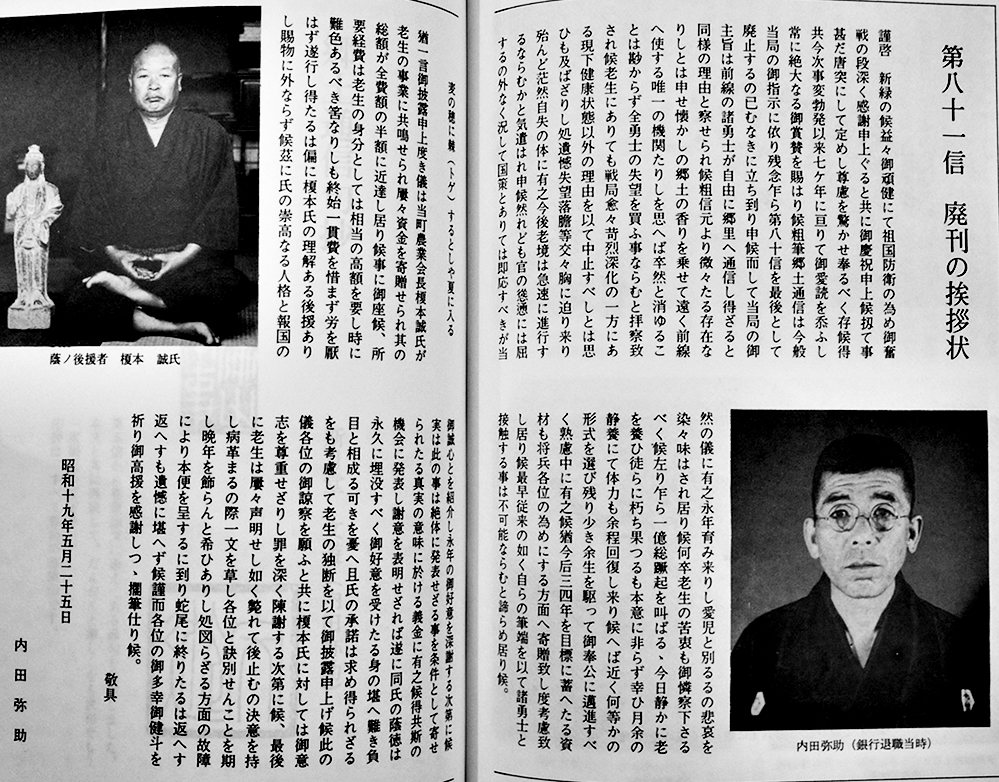 第八十一信　廃刊の挨拶状
謹啓　新緑の候益々御頑健にて祖国防衛の為め御奮
戦の段深く感謝申上ぐると共に御慶祝申上候扨て事
甚だ唐突にして定めし尊慮を驚かせ奉るべく存候得
共今次事変勃発以来七ケ年に亘りて御愛読を忝ふし
常に絶大なる御賞賛を賜はり候粗筆郷土通信は今般
当局の御指示に依り残念乍ら第八十信を最後として
廃止するの已むなきに立ち到り申候而して当局の御
主旨は前線の諸勇士が自由に郷里へ通信し得ざると
同様の理由と察せられ候粗信元より微々たる存在な
りしとは申せ懐かしの郷土の香りを乗せて遠く前線
へ使する唯一の機関たりしを思へば卒然と消ゆるこ
とは尠からず全勇士の失望を買ふ事ならむと拝察致
され候老生にありても戦局愈々苛烈深化の一方にあ
る現下健康状態以外の理由を以て中止すべしとは思
ひも及ばざりし処遺憾失望落膽等交々胸に迫り来り
殆んど茫然自失の体に有之今後老境は急速に進行す
るならむかと気遣はれ申候然れども官の慫慂には屈
するの外なく況して国策とありては即応すべきが当
然の儀に有之永年育み来りし愛児と別るるの悲哀を
染々味はされ居り候何卒老生の苦衷も御憐察下さる
べく候左り乍ら一億総蹶起を叫ばるゝ今日静かに老
を養ひ徒らに朽ち果つるも本意に非らず幸ひ月余の
静養にて体力も余程回復し来り候へば近く何等かの
形式を選び残り少き余生を駆って御奉公に邁進すべ
く熟慮中に有之候猶今后三四年を目標に蓄へたる資
材も将兵各位の為めにする方面へ寄贈致し度考慮致
し居り候最早従来の如く自らの筆端を以て諸勇士と
接触する事は不可能ならむと諦らめ居り候。
内田弥助（銀行退職当時）
麦の穂に棘（トゲ）するどしや夏に入る
猶一言御披露申上度き儀は当町農業会長榎本誠氏が
老生の事業に共鳴せられ屡々資金を寄贈せられ其の
総額が全費額の半額に近達し居り候事に御座候、所
要経費は老生の身分としては相当の高額を要し時に
難色あるべき筈なりしも終始一貫費を惜まず労を厭
はず遂行し得たるは偏に榎本氏の理解ある後援あり
し賜物に外ならず候茲に氏の崇高なる人格と報国の
蔭ノ後援者　榎本　誠氏
御誠心とを紹介し永年の御好意を深謝する次第に候
実は此の事は絶体に発表せざる事を条件として寄せ
られたる真実の意味に於ける義金に有之候得共斯の
機会に発表し謝意を表明せざれば遂に同氏の蔭徳は
永久に埋没すべく御好意を受けたる身の堪へ難き負
目と相成る可きを憂へ且氏の承諾は求め得られざる
をも考慮して老生の独断を以て御披露申上げ候此の
儀各位の御諒察を願ふと共に榎本氏に対しては御意
志を尊重せざりし罪を深く陳謝する次第に候、最後
に老生は屡々声明せし如く斃れて後止むの決意を持
し病革まるの際一文を草し各位と訣別せんことを期
し晩年を飾らんと希ひありし処図らざる方面の故障
により本便を呈するに到り蛇尾に終りたるは返へす
返へすも遺憾に堪へず候謹而各位の御多幸御健斗を
祈り御高援を感謝しつゝ擱筆仕り候。
敬具
昭和十九年五月二十五日
内田弥助